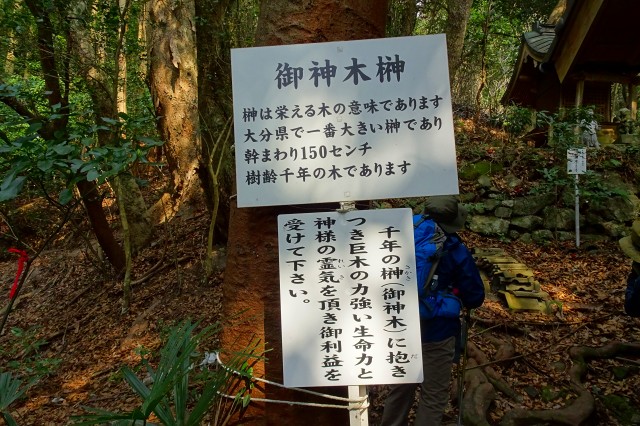 御神木榊
榊は栄える木の意味であります
大分県で一番大きい榊であり
幹まわり150センチ
樹齢千年の木であります
千年の榊(御神木)に抱き
つき巨木の力強い生命力と
神様の霊気を頂き御利益を
受けて下さい。